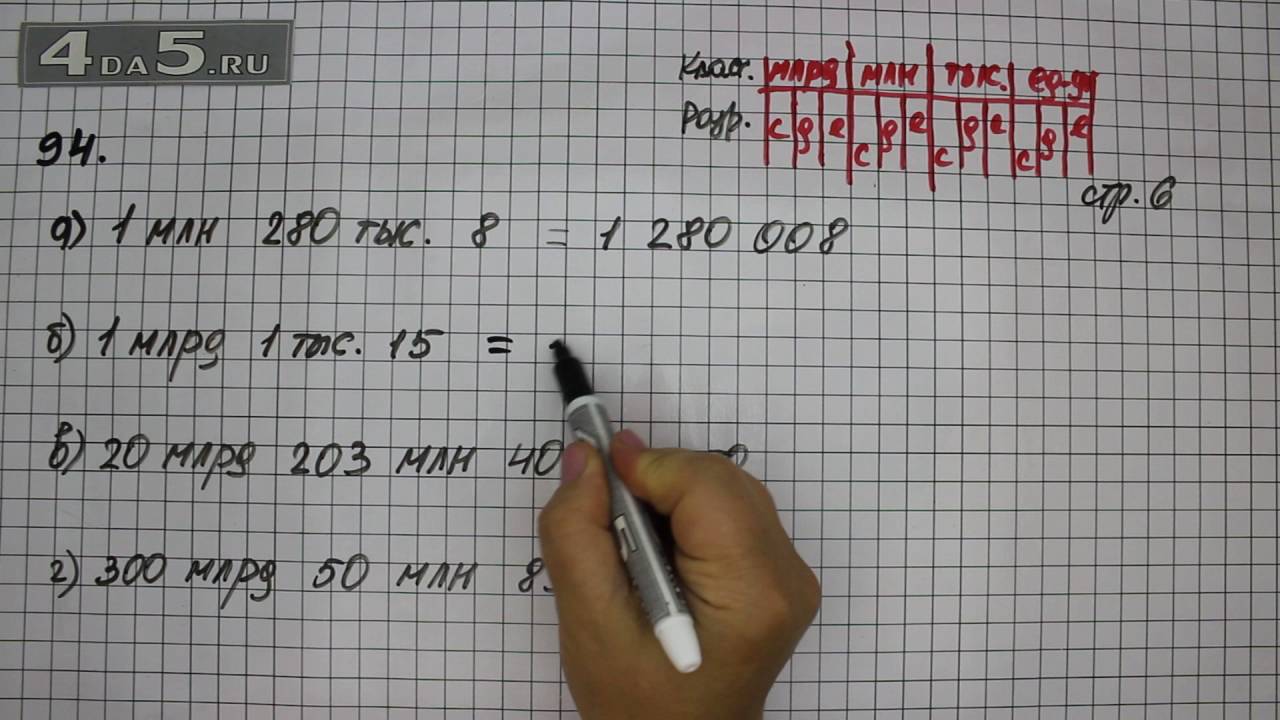 4DA5.RU
Класс. млрд млн тыс. ед-ц
Разр. с д е с д е с д е с д е
94.
стр. 6
а) 1 млн 280 тыс. 8 = 1 280 008
б) 1 млрд 1 тыс. 15 =
в) 20 млрд 203 млн 40
г) 300 млрд 50 млн 8